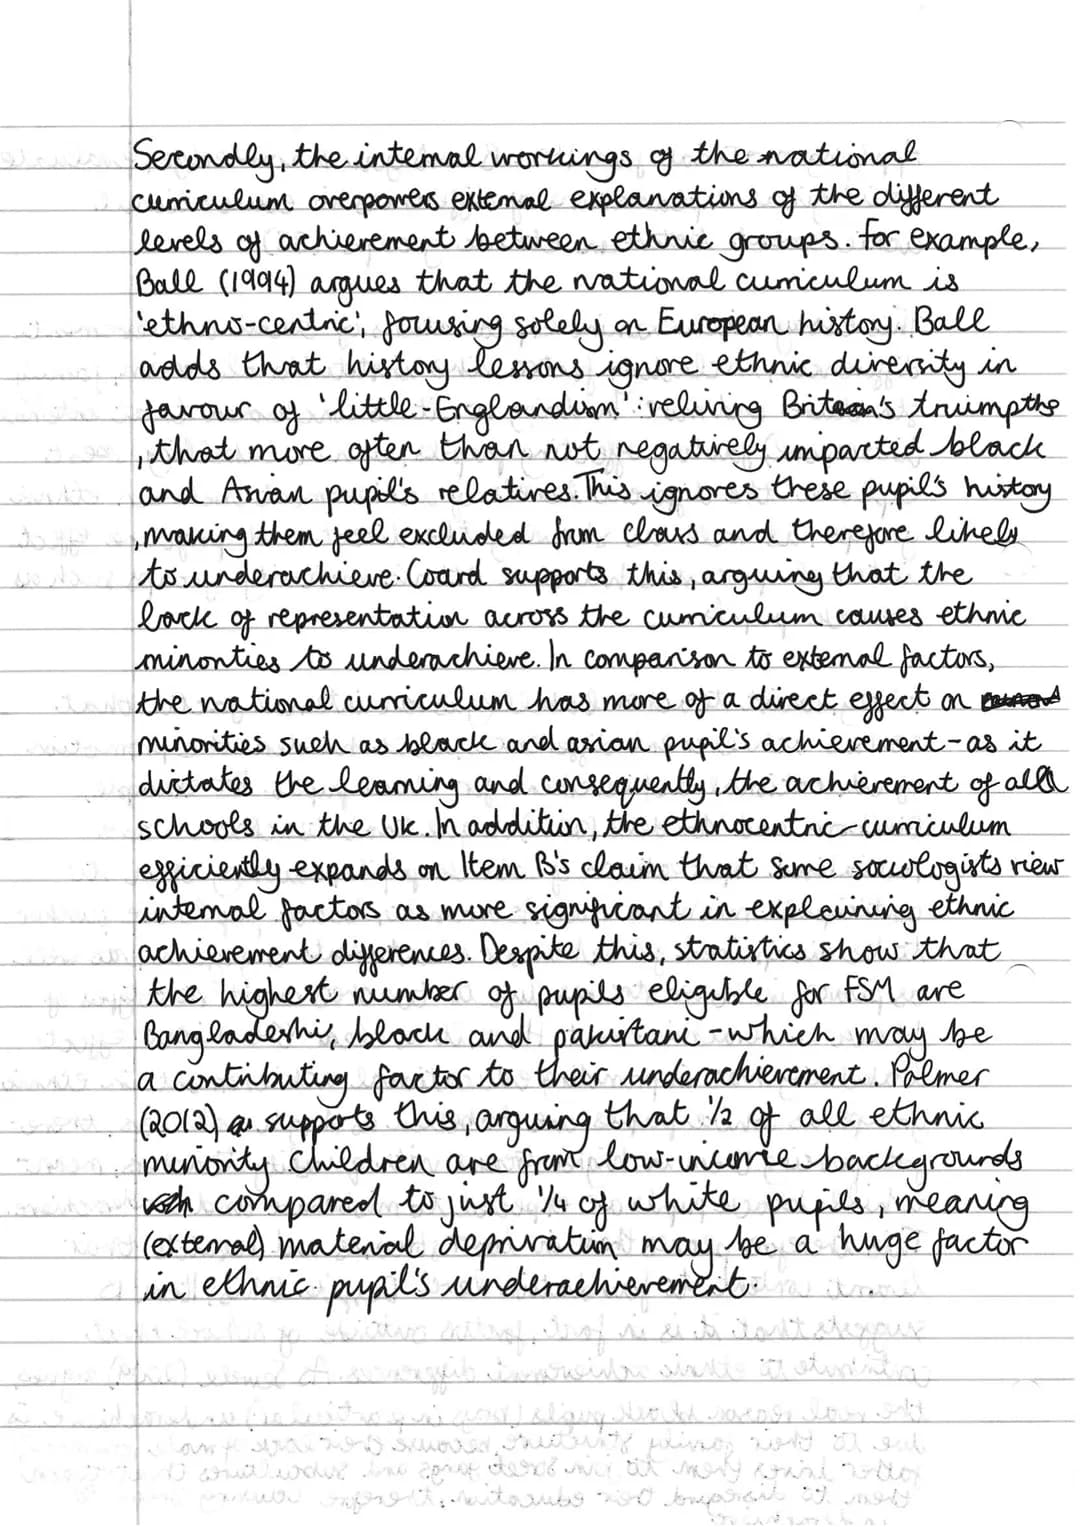 Secondly, the internal workings of the national
curriculum overpowers external explanations of the different
levels of achievement between ethnic groups. For example,
Ball (1994) argues that the national curriculum is
'ethno-centric', focusing solely on European history. Ball
adds that history lessons ignore ethnic diversity in
favour of 'little-Englandism': reliving Britain's truimpths
, that more often than not negatively impacted black
and Asian pupil's relatives. This ignores these pupil's history
, making them feel excluded from class and therefore likely
to underachieve. Coard supports this, arguing that the
lack of representation across the curriculum causes ethnic
minorities to underachieve. In comparison to external factors,
the national curriculum has more of a direct effect on
minorities such as black and asian pupil's achievement - as it
dictates the learning and consequently, the achievement of all
schools in the UK. In addition, the ethnocentric curriculum
efficiently expands on Item B's claim that some sociologists view
internal factors as more significant in explaining ethnic
achievement differences. Despite this, statistics show that
the highest number of pupils eligible for FSM are
Bangladeshi, black and pakistani - which may be
a contributing factor to their underachievement. Palmer
(2012) supports this, arguing that 1/2 of all ethnic
minority children are from low-income backgrounds
compared to just 1/4 of white pupils, meaning
(external) material deprivation may be a huge factor
in ethnic pupil's underachievement.